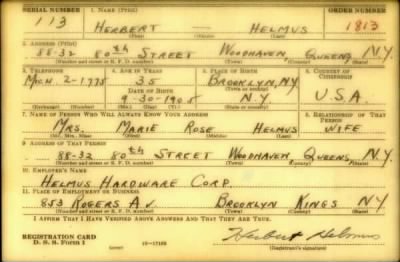 SERIAL NUMBER 1. NAME (Print) ORDER NUMBER
113 HERBERT — HELMUS 1813
(First) (Middle) (Last)
2. ADDRESS (Print)
88-32 80th STREET WOODHAVEN QUEENS N.Y.
(Number and street or R. F. D. number) (Town) (County) (State)
3. TELEPHONE 4. AGE IN YEARS 5. PLACE OF BIRTH 6. COUNTRY OF CITIZENSHIP
MICH. 2-1775 35 BROOKLYN, N.Y.
DATE OF BIRTH
9-30-1905 N.Y. U.S.A.
(Exchange) (Number) (Mo.) (Day) (Yr.) (State or country)
7. NAME OF PERSON WHO WILL ALWAYS KNOW YOUR ADDRESS 8. RELATIONSHIP OF THAT PERSON
MRS. MARIE ROSE HELMUS WIFE
(Mr., Mrs., Miss) (First) (Middle) (Last)
9. ADDRESS OF THAT PERSON
88-32 80th STREET WOODHAVEN QUEENS, N.Y.
(Number and street or R. F. D. number) (Town) (County) (State)
10. EMPLOYER'S NAME
HELMUS HARDWARE CORP.
11. PLACE OF EMPLOYMENT OR BUSINESS
853 ROGERS AV. BROOKLYN KINGS NY
(Number and street or R. F. D. number) (Town) (County) (State)
I AFFIRM THAT I HAVE VERIFIED ABOVE ANSWERS AND THAT THEY ARE TRUE.
REGISTRATION CARD
D. S. S. Form 1 16-17105 Herbert Helmus
(Registrant's signature)